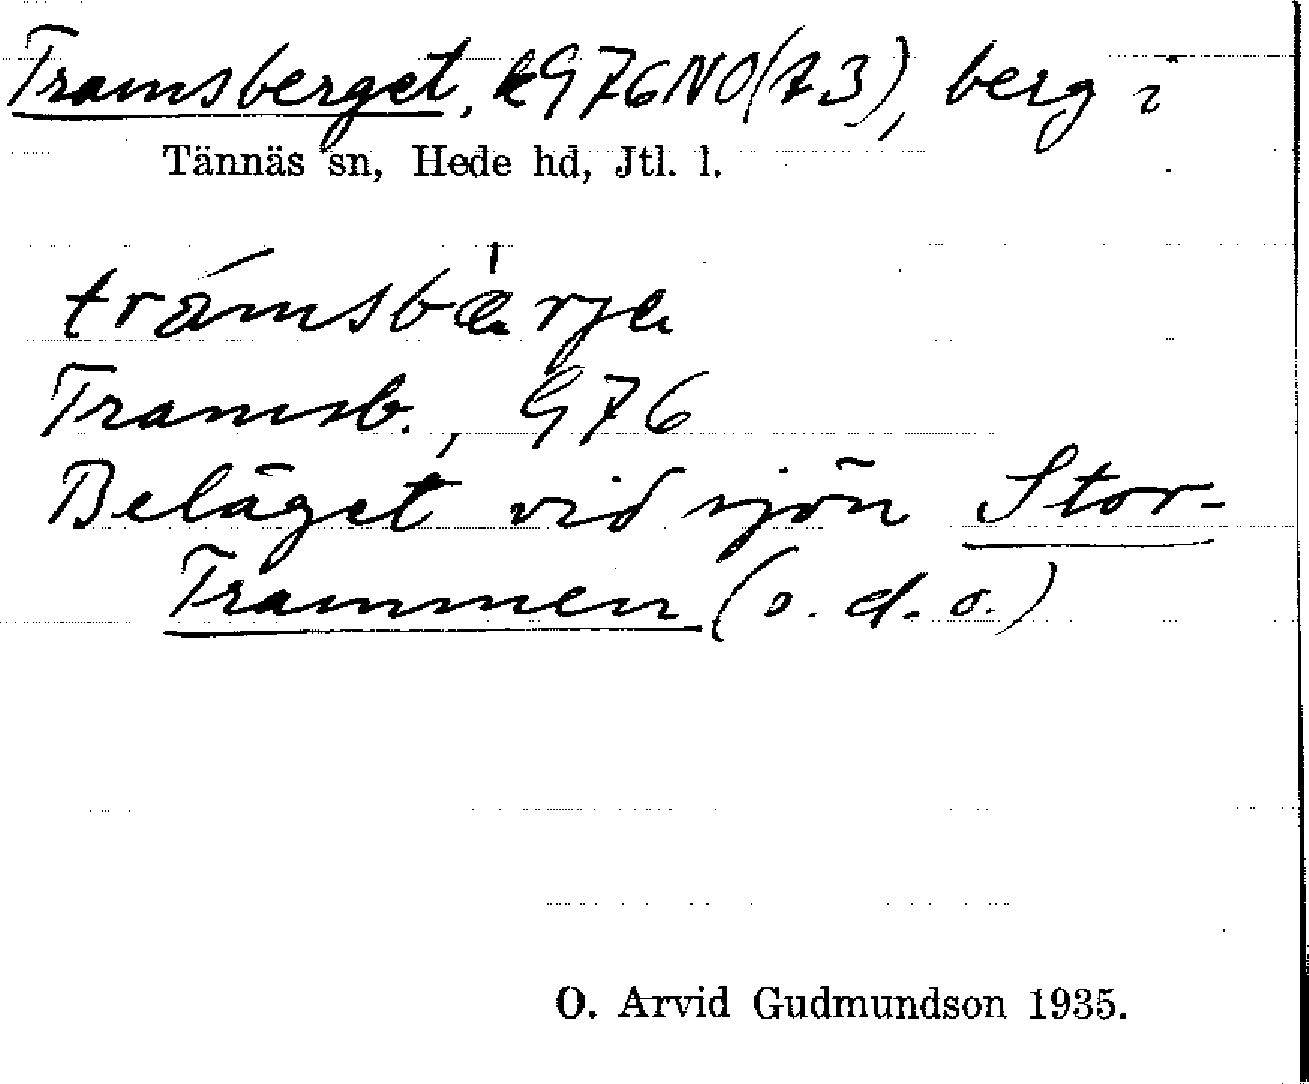 Tramsberget, k976NO(73), berg i
Tännäs sn, Hede hd, Jtl. l.
trámsbä̀rjä
Tramsb., 976
Beläget vid sjön Stor-
Trammen (o.d.o.)
O. Arvid Gudmundson 1935.